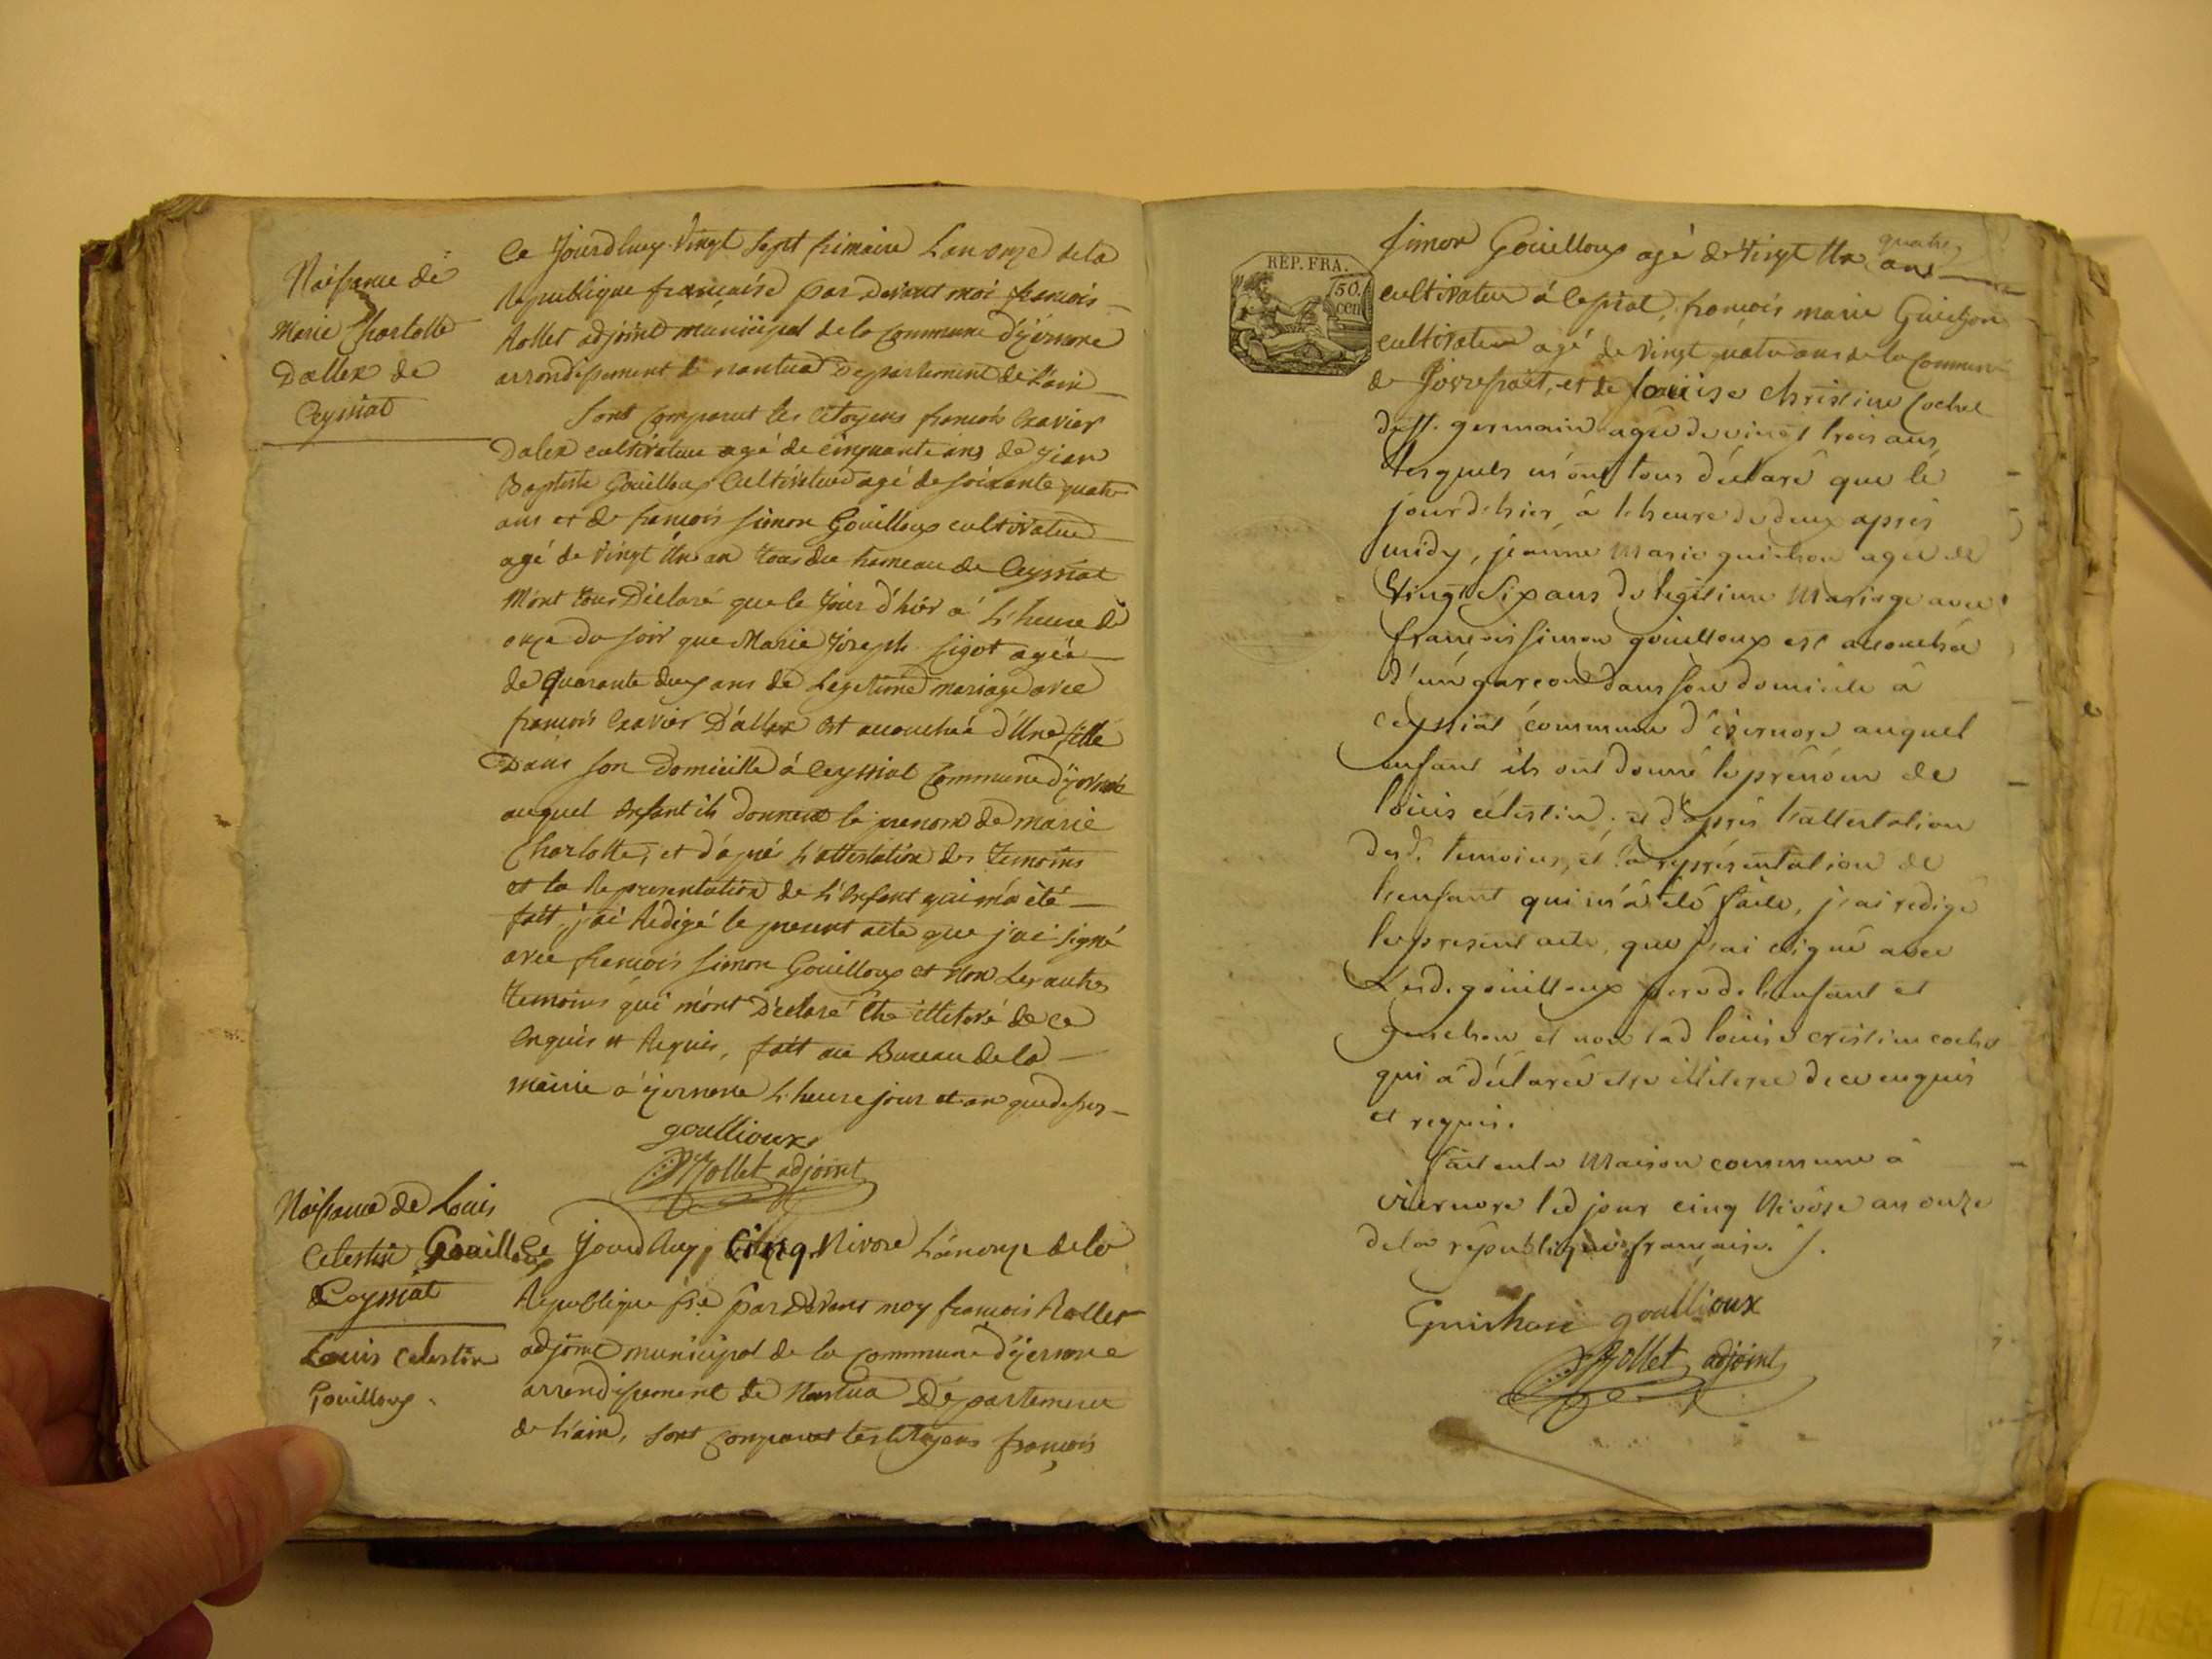 Naissance de
Marie Charlotte
Dallex de
Ceyssiat
Ce Jourdhuy Vingt Sept frimaire L'an onze de la
Republique française par devant moi françois
Rollet adjoint municipal de la Commune d'yzernore
arrondissement de nantua Departement de L'ain
Sont Comparut les Citoyens francois Xavier
Dalex cultivateur agé de cinquante ans de jean
Baptiste Gouilloux Cultivateur agé de soixante quatre
ans et de francois Simon Gouilloux cultivateur
agé de Vingt Un an tous du hameau de Ceyssiat
M'ont tous Déclaré que le Jour d'hier a L'heure de
onze du soir que Marie Joseph Sigot agée
de Quarante deux ans de Legetime mariage avec
francois Xavier Dallex est accouchée d'Une fille
Dans son Domicille á Ceyssiat Commune d'yzernore
auquel Enfant ils donnent le prenom de marie
Charlotte, et d'aprés L'attestation des temoins
et la Representation de L'Enfant qui m'a été
fait, j'ai Redigé le present acte que j'ai signé
avec francois Simon Gouilloux et non Les autres
temoins qui m'ont Déclaré Etre illeteré de ce
Enquis et Requis, fait au Bureau de la
mairie a yzernore L'heure jour et an que dessus
goullioux
Rollet adjoint
Naissance de Louis
Celestin Gouilloux
de Ceyssiat
Louis Celestin
Gouilloux
Ce Jourdhuy Cinq Nivose L'an onze de la
Republique fse par Devant moy francois Rollet
adjoint municipal de la Commune d'yzernore
arrondissement de Nantua Departement
de L'ain, sont Comparut les Citoyens francois
REP. FRA.
50.
cen
Simon Gouilloux agé de Vingt Un quatre ans
cultivateur á Cessiat, francois marie Guichon
cultivateur agé de vingt quatre ans de la Commune
de et de Louise Christine Cochet
de St. germain agée de vingt trois ans,
lesquels m'ont tous déclaré que le
jour d'hier, à l'heure de deux apres
midy, jeanne Marie guichon agée de
Vingt Six ans de legitime Mariage avec
francois simon gouilloux est accouchée
d'un garcon dans son domicile à
ceyssiat commune d'izernore auquel
enfant ils ont donné le prénom de
louis celestin, et d'après l'attestation
desd. temoins, et la représentation de
l'enfant qui m'a été faite, j'ai redigé
le present acte, que j'ai signé avec
Lesd. gouilloux pere de l'enfant et
guichon et non lad louise cristine cochet
qui a déclarée etre illeterée de ce enquis
et requis.
fait en la Maison commune à
izernore led jour cinq Nivôse an onze
de la république française. /.
Guichon goullioux
Rollet adjoint